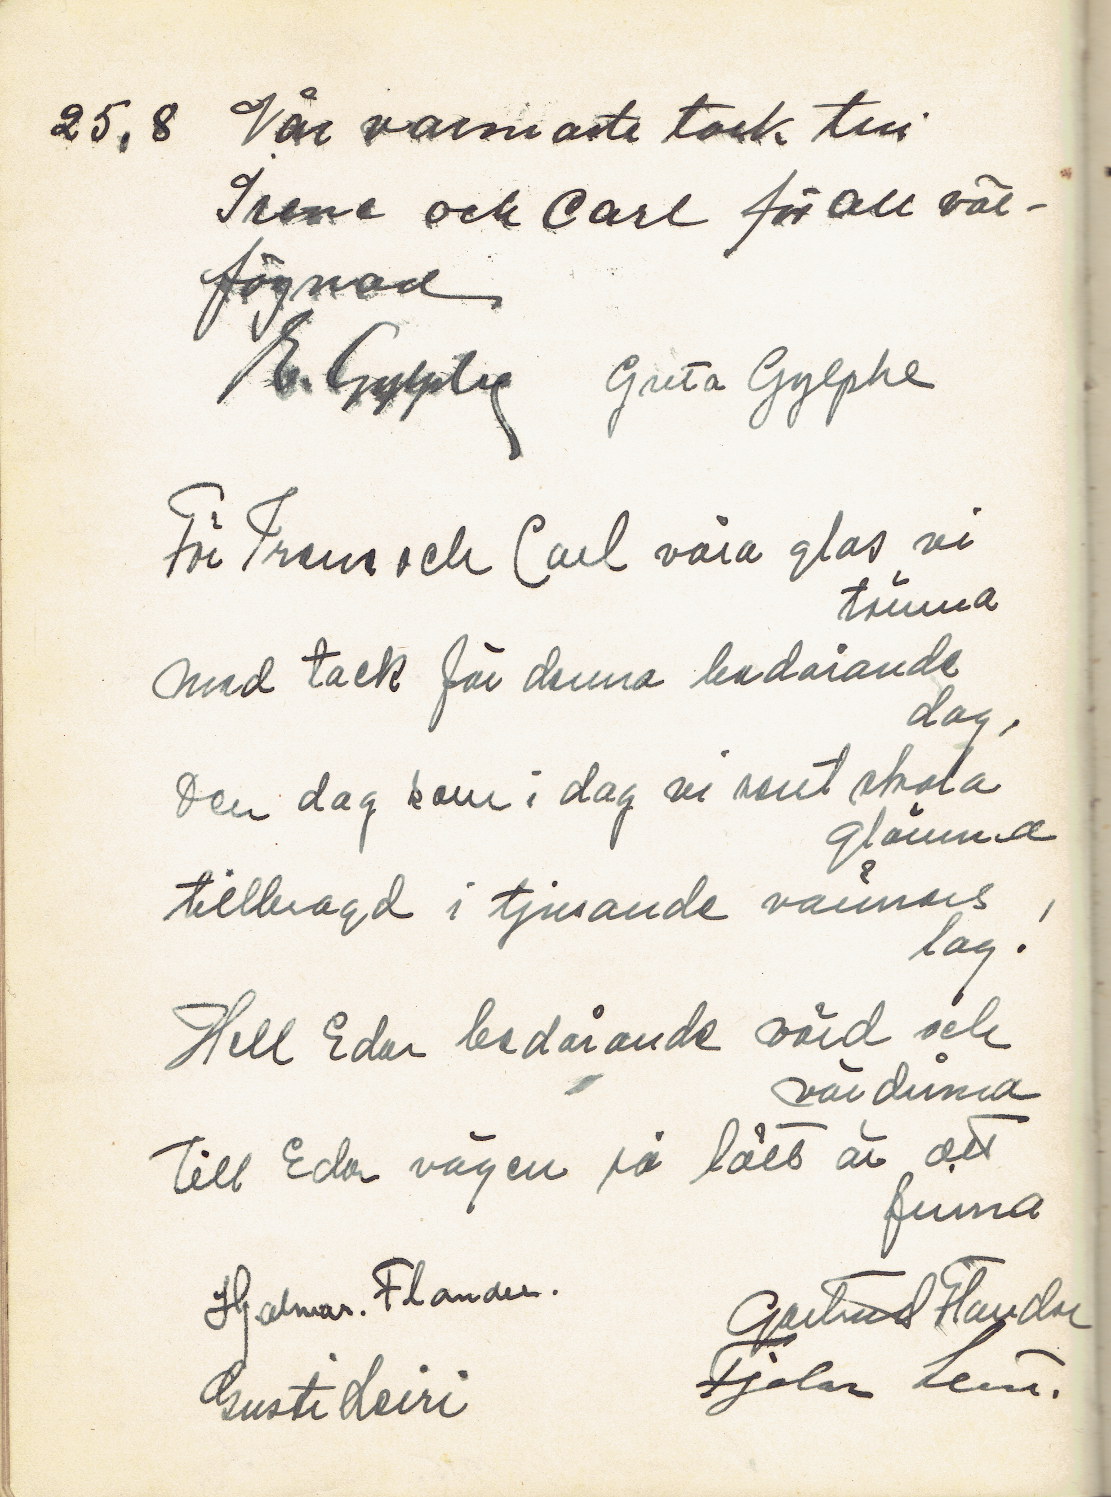 25,8 Vår varmaste tack till
Irene och Carl för all väl-
fägnad
E. Gylphe Greta Gylphe
För Irene och Carl våra glas vi
tömma
med tack för denna bedårande
dag,
Den dag som i dag vi sent skola
glömma
tillbragd i tjusande vänners
lag!
Hell Eder bedårande värd och
värdinna
Till Eder vägen så lätt är att
finna
Hjalmar. Flander.
Gertrud Flander
Gusti Leiri
Fjalar